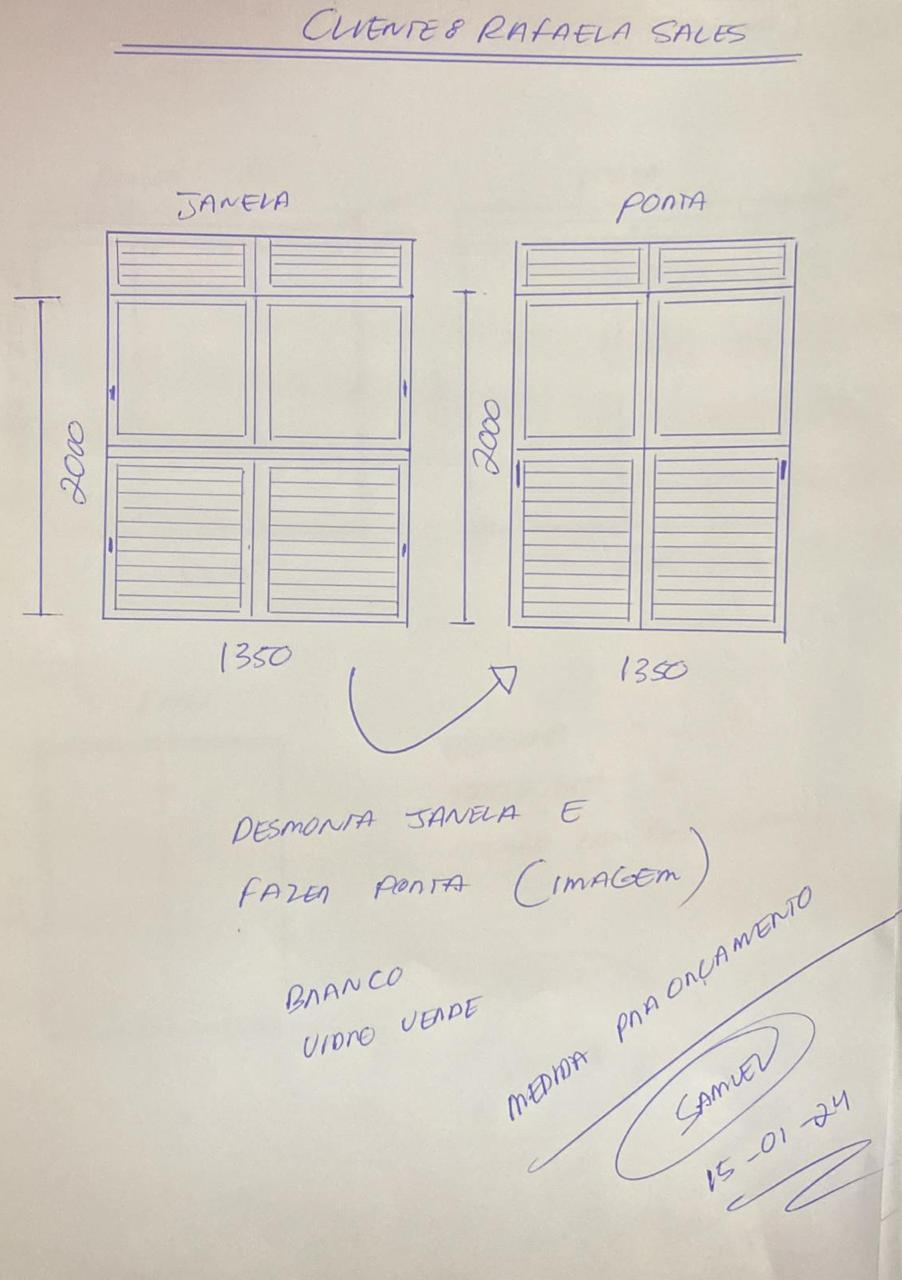 CLIENTE: RAFAELA SALES
JANELA
PORTA
2000
2000
1350
1350
DESMONTA JANELA E
FAZER PORTA (IMAGEM)
BRANCO
VIDRO VERDE
MEDIDA PRA ORÇAMENTO
SAMUEL
15-01-24